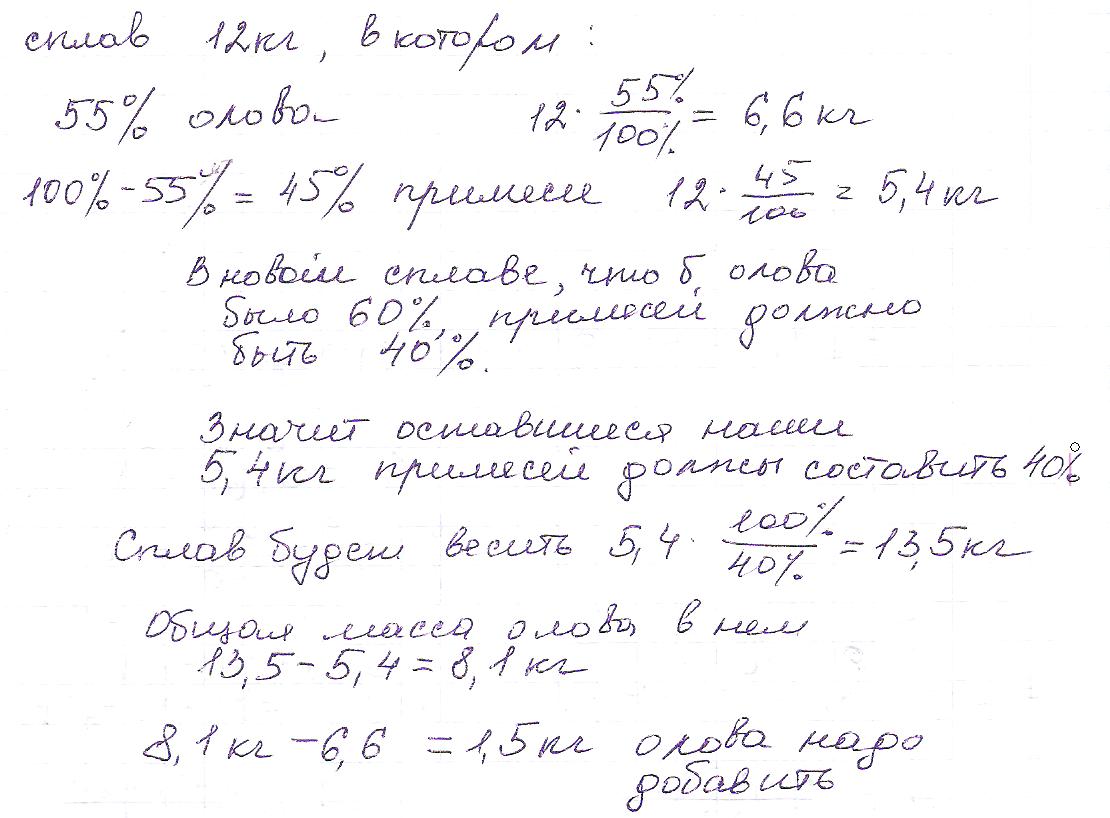 сплав 12кг, в котором:
55% олова 12 · 55%/100% = 6,6 кг
100% - 55% = 45% примеси 12 · 45/100 = 5,4 кг
В новом сплаве, что б, олова
было 60%, примесей должно
быть 40%.
Значит оставшиеся наши
5,4кг примесей должы составить 40%
Сплав будет весить 5,4 · 100%/40% = 13,5кг
Общая масса олова в нем
13,5 - 5,4 = 8,1 кг
8,1 кг - 6,6 = 1,5 кг олова надо
добавить